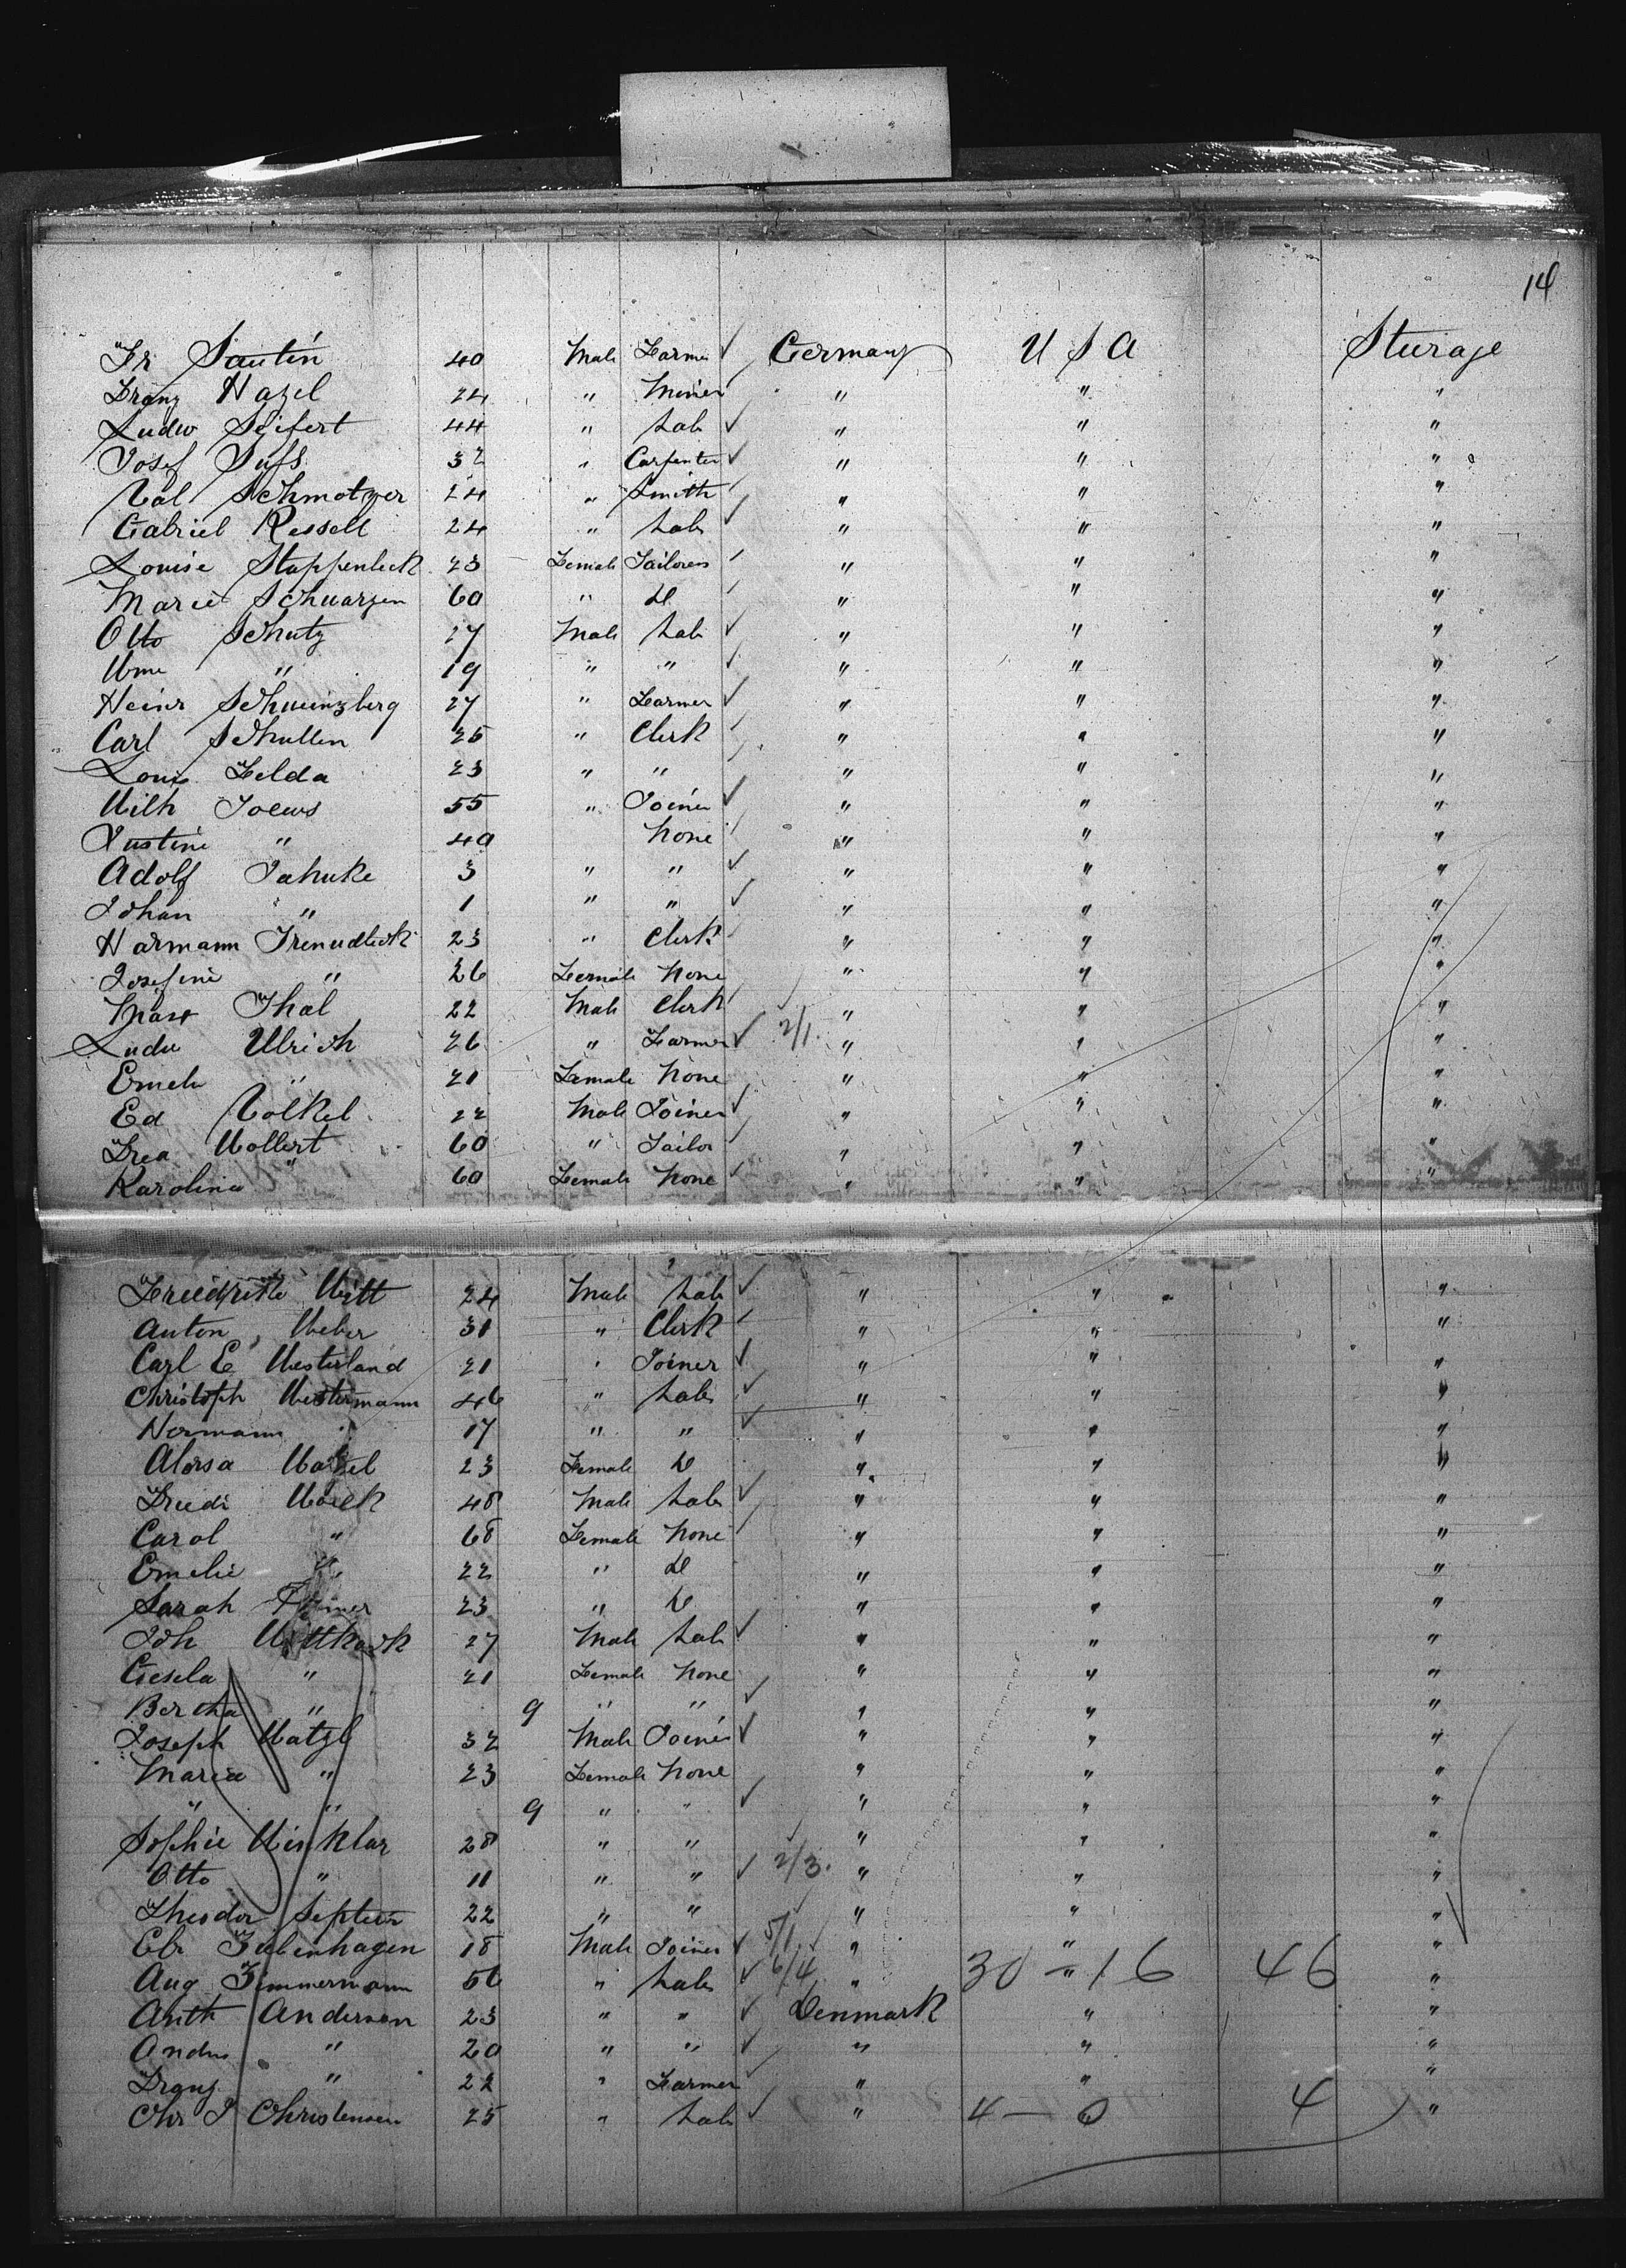 14
Fr Sautin 40 Male Farmer ✓ Germany U S A Steerage
Franz Hazel 24 " Miner " " "
Ludw Seifert 44 " Lab ✓ " " "
Josef Sufs 32 " Carpenter ✓ " " "
Val Schmotzer 24 " Smith " " "
Gabriel Ressell 24 " Lab ✓ " " "
Louise Stappenbeck 23 Female Tailoress " " "
Marie Schwarzen 60 " Do " " "
Otto Schutz 27 Male Lab ✓ " " "
Wm " 19 " " ✓ " " "
Heinr Schweinzberg 27 " Farmer ✓ " " "
Carl Schullen 25 " Clerk " " "
Louis Felda 23 " " " " "
Wilh Toews 55 " Joiner ✓ " " "
Justine " 40 None " " "
Adolf Jahnke 3 " " ✓ " " "
Johan " 1 " " ✓ " " "
Harmann 23 " Clerk " " "
Josefine " 26 Female None " " "
Max Thal 22 Male Clerk " " "
Ludw Ulrich 26 " Farmer ✓ 2/1 " " "
Emelie " 21 Female None " " "
Ed Volkel 22 Male Joiner ✓ " " "
Fred Wollert 60 " Tailor " " "
Karolina " 60 Female None ✓ " " "
Friedrich Witt 24 Male Lab ✓ " " "
Anton Weber 31 " Clerk " " "
Carl E Westerland 21 " Joiner ✓ " " "
Christoph Westermann 46 " Lab ✓ " " "
Hermann " 17 " " ✓ " " "
23 Female Do " " "
48 Male Lab ✓ " " "
Carol " 68 Female None " " "
Emelie " 22 " Do " " "
Sarah 23 " Do " " "
Joh Wittkock 27 Male Lab ✓ " " "
Gesela " 21 Female None " " "
Bertha " 9 " " ✓ " " "
Joseph Watzl 32 Male Joiner ✓ " " "
Maria " 23 Female None " " "
" " 9 " " ✓ " " "
Sophie Winklar 28 " " " " "
Otto " 11 " " ✓ 2/3 " " "
Theodor 22 " " " " "
Eb Ziebenhagen 18 Male Joiner ✓ 5/1 " " "
Aug Zimmermann 56 " Lab ✓ 6/4 " 30 - 16 46 "
Anth Anderson 23 " " ✓ Denmark " "
Andw " 20 " " ✓ " " "
Franz " 22 " Farmer " " "
Chr J Christensen 25 " Lab ✓ " 4 - 0 4 "